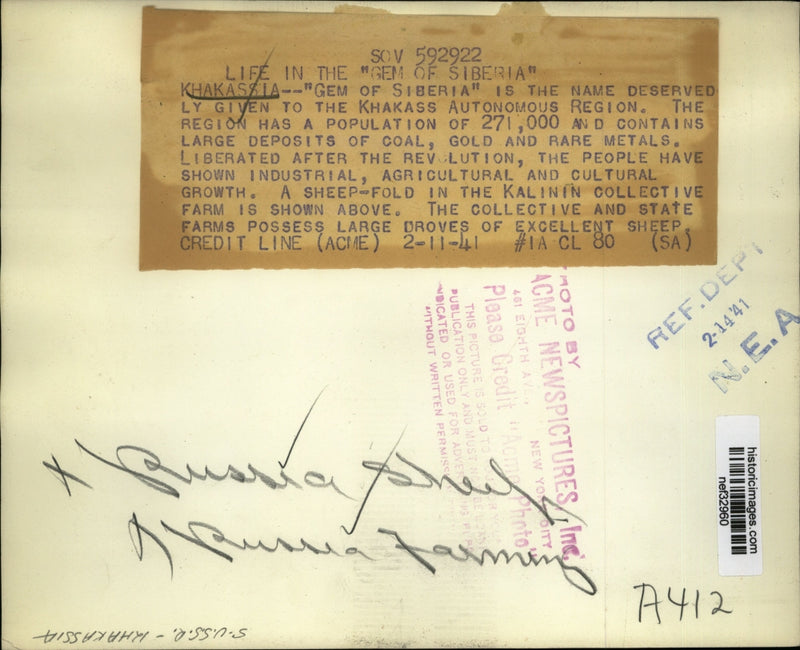 SOV 592922
LIFE IN THE "GEM OF SIBERIA"
KHAKASSIA--"GEM OF SIBERIA" IS THE NAME DESERVED
LY GIVEN TO THE KHAKASS AUTONOMOUS REGION. THE
REGION HAS A POPULATION OF 271,000 AND CONTAINS
LARGE DEPOSITS OF COAL, GOLD AND RARE METALS.
LIBERATED AFTER THE REVOLUTION, THE PEOPLE HAVE
SHOWN INDUSTRIAL, AGRICULTURAL AND CULTURAL
GROWTH. A SHEEP-FOLD IN THE KALININ COLLECTIVE
FARM IS SHOWN ABOVE. THE COLLECTIVE AND STATE
FARMS POSSESS LARGE DROVES OF EXCELLENT SHEEP.
CREDIT LINE (ACME) 2-11-41 #1A CL 80 (SA)
REF. DEPT
2-14'41
N.E.A
PHOTO BY
ACME NEWSPICTURES, Inc.
461 EIGHTH AV., NEW YORK CITY
Please Credit "Acme Photo"
THIS PICTURE IS SOLD TO
PUBLICATION ONLY AND MUST
INDICATED OR USED FOR
WITHOUT WRITTEN PERMISS
historicimages.com
nef32960
x Russia Sheep
Russia Farming
A412
S-U.S.S.R. - KHAKASSIA